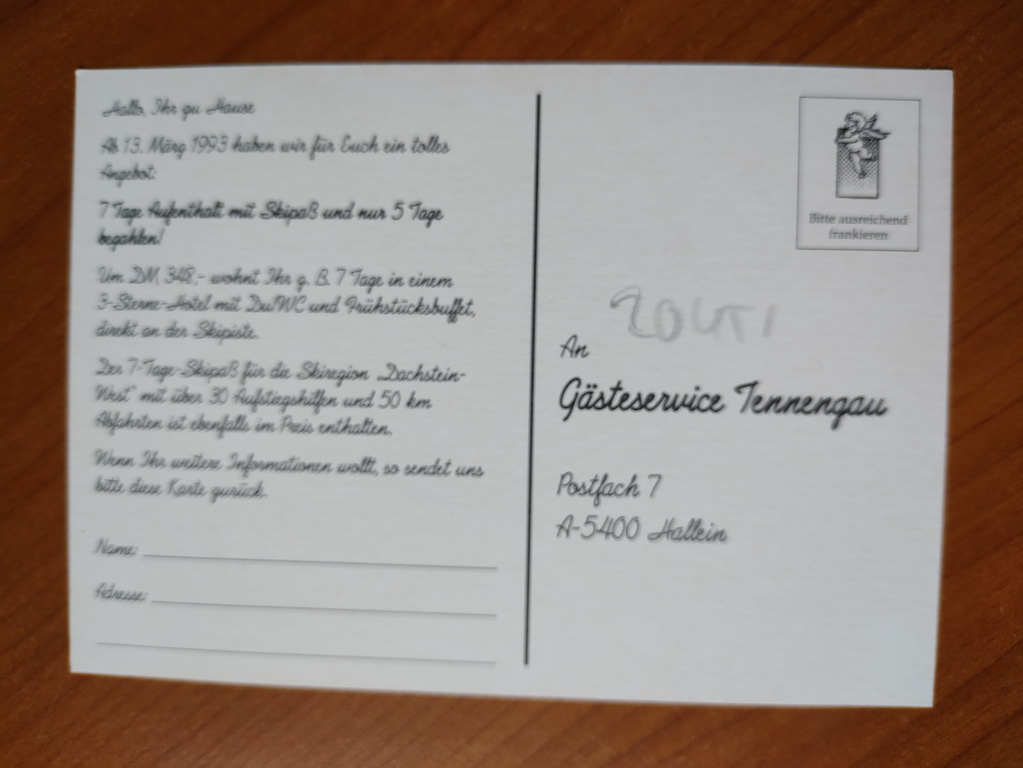 Hallo, Ihr zu Hause
Ab 13. März 1993 haben wir für Euch ein tolles
Angebot:
7 Tage Aufenthalt mit Skipaß und nur 5 Tage
bezahlen!
Um DM 348,- wohnt Ihr z. B. 7 Tage in einem
3-Sterne-Hotel mit Du/WC und Frühstücksbuffet,
direkt an der Skipiste.
Der 7-Tage-Skipaß für die Skiregion „Dachstein-
West" mit über 30 Aufstiegshilfen und 50 km
Abfahrten ist ebenfalls im Preis enthalten.
Wenn Ihr weitere Informationen wollt, so sendet uns
bitte diese Karte zurück.
Name:
Adresse:
Bitte ausreichend
frankieren
An
Gästeservice Tennengau
Postfach 7
A-5400 Hallein